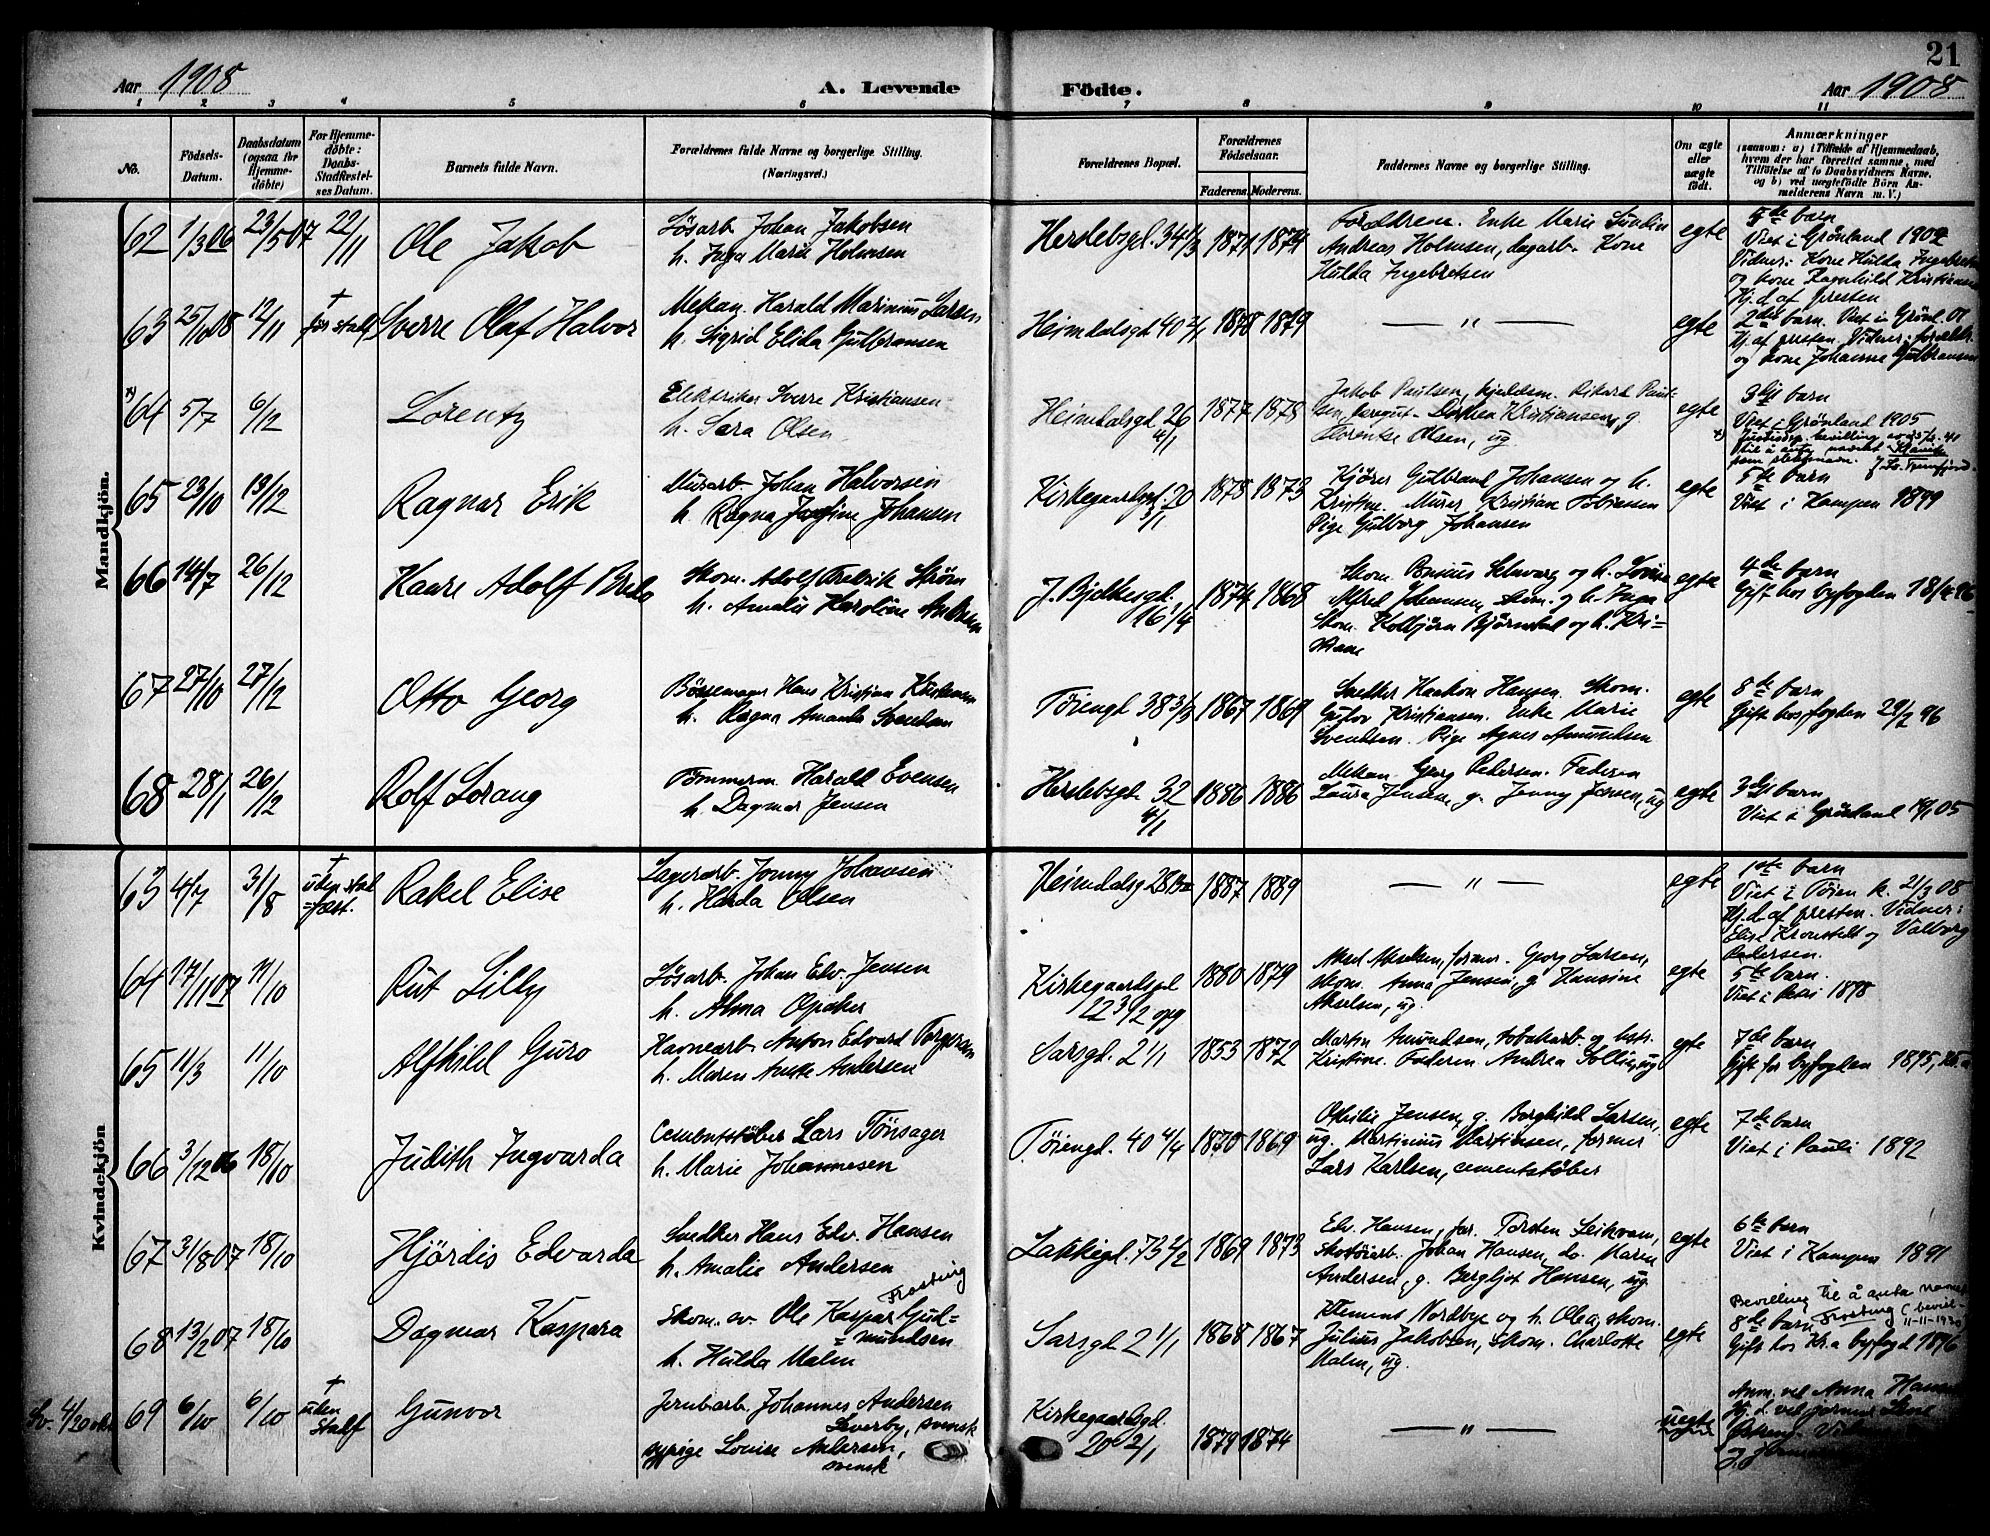 21
Aar 1908 A. Levende Fødte. Aar 1908
1 2 3 4 5 6 7 8 9 10 11
No.
Fødsels-
Datum.
Daabsdatum
(ogsaa for
Hjemme-
døbte)
For Hjemme-
døbte:
Daabs-
Stadfæstel-
ses Datum.
Barnets fulde Navn.
Forældrenes fulde Navne og borgerlige Stilling.
(Næringsvei.)
Forældrenes Bopæl.
Forældrenes
Fødselsaar.
Faderens. Moderens.
Faddernes Navne og borgerlige Stilling.
Om ægte
eller
uægte
født.
Anmærkninger
(saasom: a) i Tilfælde af Hjemmedaab,
hvem der har forrettet samme, med
Tilføielse af to Daabsvidners Navne.
og b) ved uægtefødte Børn An-
melderens Navn m. V.)
Mandkjön.
62 1/3 06 23/5 07 22/11 Ole Jakob
Løsarb. Johan Jakobsen
h. Inga Marie Holmsen
Herslebsgd. 34 1/3 1871 1874
Forældrene. Enke Marie Sundin
Andreas Holmsen, dagarb. Kone
Hulda Ingebretsen
egte
5de barn
Viet i Grønland 1902
Vidner: Kone Hulda Ingebretsen
og kone Ragnhild Kristiansen
Hj.d. af presten
63 25/10 08 12/11 † før stadf. Sverre Olaf Halvor
Mekan. Harald Marinius Larsen
h. Sigrid Elida Gulbransen
Heimdalsgd 40 2/1 1878 1879
— " —
egte
2det barn. Viet i Grønl. 01
Hj. af presten. Vidner: foreldr.
og kone Johanne Gulbransen
x) 64 5/7 6/12 Lorentz
Elektriker Sverre Kristiansen
h. Sara Olsen
Heimdalsgd 26
4/1
1877 1878
Jakob Paulsen, kjeldsm. Rikard Paul-
sen, Dorthea Kristiansen, g.
Florentse Olsen, ug.
egte
3dje barn
Viet i Grønland 1905
x) Justisdep. bevilling av
til å anta navnet
som slektsnavn.
65 23/10 13/12 Ragnar Erik
Murarb. Johan Halvorsen
h. Ragna Josefine Johansen
Kirkegaardsgd. 20
3/1
1875 1873
Kjører Gulbrand Johansen og h.
Kristine. Murer Kristian Tobiassen
Pige Gulborg Johansen
egte
5te barn
Viet i Kampen 1899
66 14/7 26/12 Kaare Adolf Brede
Skom. Adolf Fredrik Strøm
h. Amalie Karoline Andersen
J. Bjelkesgd.
16 1/4
1874 1868
Skom. Schwarz og h. Lovise
Alfred Johansen, skom. og h. Inga
Skom. Kolbjørn Bjørnstad og h. Kri-
stiane
egte
4de barn
Gift hos byfogden 18/4 96
67 27/10 27/12 Otto Georg
Børsemager Hans Kristian Kristiansen
h. Ragna Amanda Svendsen
Tøiengd 38 3/3 1867 1869
Snedker Haakon Hansen. Skom.
Gustav Kristiansen. Enke Marie
Svendsen. Pige Agnes Amundsen
egte
8de barn
Gift hos fogden 29/2 96
68 28/1 26/12 Rolf Lorang
Tømmerm. Harald Evensen
h. Dagmar Jensen
Herslebsgd. 32
4/1
1886 1886
Mekan. Georg Pedersen. Faderen
Laura Jensen, g. Jenny Jensen, ug
egte
3dje barn
Viet i Grønland 1905
Kvindekjön
63 4/7 31/8 † uden stad-
fæst.
Rakel Elise
Lagerarb. Jonny Johansen
h. Harda Olsen
Heimdalsgd 28 1887 1889
— " —
egte
1ste barn
Viet i Tøien k. 21/3 08
Hj.d. af presten. Vidner:
Elise Kronstedt og Valborg
Pedersen.
64 17/11 07 11/10 Rut Lilly
Løsarb. Johan Edv. Jensen
h. Alma Opaker
Kirkegaardsgd
12 3/2 opg
1880 1879
Aksel Akselsen, former. Georg Larsen,
skom. Anna Jensen, g. Hansine
Akselsen, ug.
egte
5te barn.
Viet i Petri 1898
65 11/3 11/10 Alfhild Guro
Havnearb. Anton Edvard Torgersen
h. Maren Aaste Andersen
Sarsgd. 2 1/1 1853 1872
Martin Amundsen, tobakarb. og hstr.
Kristine. Faderen Andrea Solli, ug
egte
7de barn
Gift for byfogden 1895, Kr.a
66 3/12 06 18/10 Judith Ingvarda
Cementstøber Lars Tönsager
h. Marie Johannesen
Tøiengd. 40 4/4 1870 1869
Othilie Jensen, g. Borghild Larsen,
ug. Martinius Martinsen, former
Lars Karlsen, cementstøber
egte
7de barn
Viet i Pauli 1892
67 31/8 07 18/10 Hjördis Edvarda
Snedker Hans Edv. Hansen
h. Amalie Andersen
Lakkegd. 73 2/2 1869 1873
Edv. Hansen, for. Torsten Leikvam,
skotøiarb. Johan Hansen, do. Maren
Andersen, g. Bergljot Hansen, ug.
egte
6te barn
Viet i Kampen 1891
68 13/2 07 18/10 Dagmar Kaspara
Frosting
Skom. sv. Ole Kaspar Gud-
mundsen
h. Hulda Malm
Sarsgd. 2 1/1 1868 1867
Klemens Nordbye og h. Olea, skom.
Julius Jakobsen, skom. Charlotte
Malm, ug.
egte
Bevilling til å anta navnet
Frosting (bevill. 11-11-1930)
8de barn
Gift hos Kr.a byfogd 1896
69 6/10 6/10 † uden
stadf
Gunvor
Jernbarb. Johannes Andersen
Leverby, svensk
sypige Louise Andersen,
svensk
Kirkegaardsgd.
20 2/1
1879 1874
— " —
uegte
Anm. ved Anna Hansen
Hj. d. ved jormor